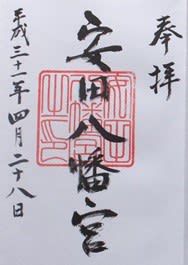 奉拝
安田八幡宮
平成三十一年四月二十八日